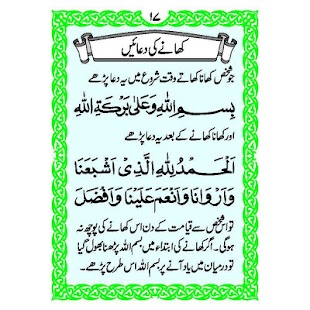 ۱۷
کھانے کی دعائیں
جو شخص کھانا کھاتے وقت شروع میں یہ دعا پڑھے
بِسْمِ اللهِ وَعَلٰى بَرَكَةِ اللهِ
اور کھانا کھانے کے بعد یہ دعا پڑھے
اَلْحَمْدُ لِلّٰهِ الَّذِىْ اَشْبَعَنَا
وَاَرْوَانَا وَاَنْعَمَ عَلَيْنَا وَاَفْضَلَ
تو اس شخص سے قیامت کے دن اس کھانے کی پوچھ نہ
ہوگی۔ اگر کھانے کی ابتداء میں بسم اللہ پڑھنا بھول گیا
تو درمیان میں یاد آنے پر بسم اللہ اس طرح پڑھے۔